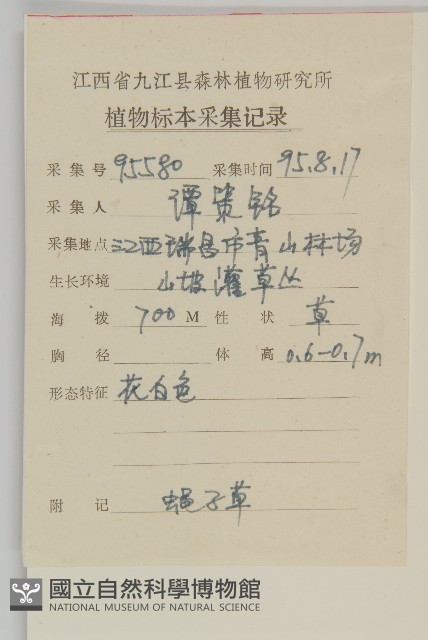 江西省九江县森林植物研究所
植物标本采集记录
采集号 95580 采集时间 95.8.17
采集人 谭策铭
采集地点 江西瑞昌市青山林场
生长环境 山坡灌草丛
海拨 700 M 性状 草
胸径 体高 0.6-0.7m
形态特征 花白色
附记 蝇子草
國立自然科學博物館
NATIONAL MUSEUM OF NATURAL SCIENCE